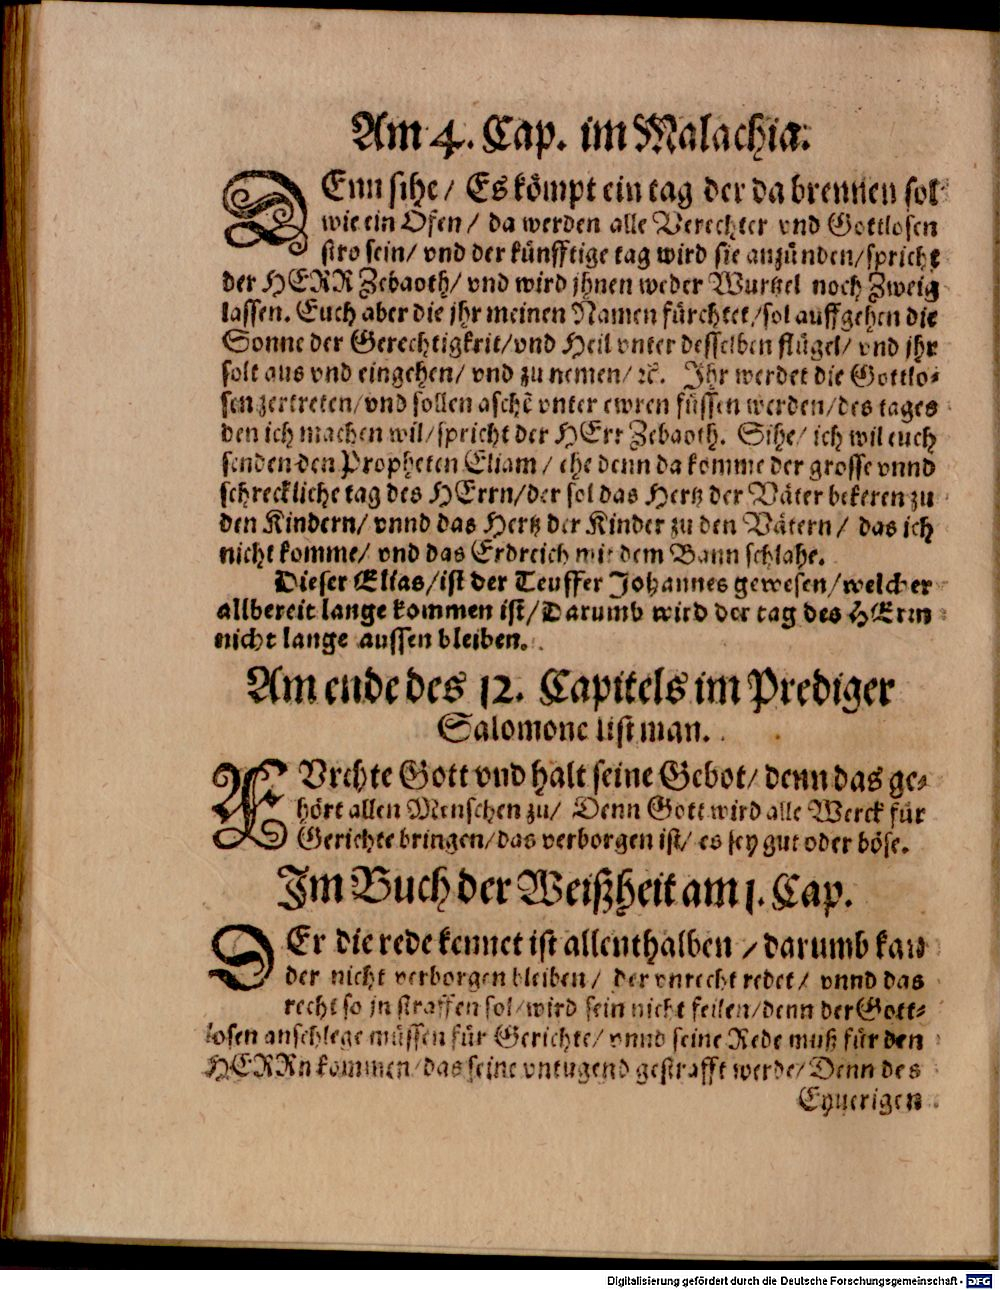 Am 4. Cap. im Malachia.
DEnn sihe / Es kömpt ein tag der da brennen sol
wie ein Ofen / da werden alle Verechter vnd Gottlosen
stro sein / vnd der künfftige tag wird sie anzünden / spricht
der HERR Zebaoth / vnd wird jhnen weder Wurtzel noch Zweig
lassen. Euch aber die jhr meinen Namen fürchtet / sol auffgehen die
Sonne der Gerechtigkeit / vnd Heil vnter desselben flügel / vnd jhr
solt aus vnd eingehen / vnd zu nemen / ꝛc. Ihr werdet die Gottlo⸗
sen zertreten / vnd sollen aschẽ vnter ewren füssen werden / des tages
den ich machen wil / spricht der HErr Zebaoth. Sihe / ich wil euch
senden den Propheten Eliam / ehe denn da komme der grosse vnnd
schreckliche tag des HErrn / der sol das Hertz der Väter bekeren zu
den Kindern / vnnd das Hertz der Kinder zu den Vätern / das ich
nicht komme / vnd das Erdreich mit dem Bann schlahe.
Dieser Elias / ist der Teuffer Johannes gewesen / welcher
allbereit lange kommen ist / Darumb wird der tag des HErrn
nicht lange aussen bleiben.
Am ende des 12. Capitels im Prediger
Salomone list man.
FVrchte Gott vnd halt seine Gebot / denn das ge⸗
hört allen Menschen zu / Denn Gott wird alle Werck für
Gerichte bringen / das verborgen ist / es sey gut oder böse.
Im Buch der Weißheit am 1. Cap.
DEr die rede kennet ist allenthalben / darumb kan
der nicht verborgen bleiben / der vnrecht redet / vnnd das
recht so jn straffen sol / wird sein nicht feilen / denn der Gott⸗
losen anschlege müssen für Gerichte / vnnd seine Rede muß für den
HERRn kommen / das seine vntugend gestrafft werde / Denn des
Eyuerigen
Digitalisierung gefördert durch die Deutsche Forschungsgemeinschaft - DFG